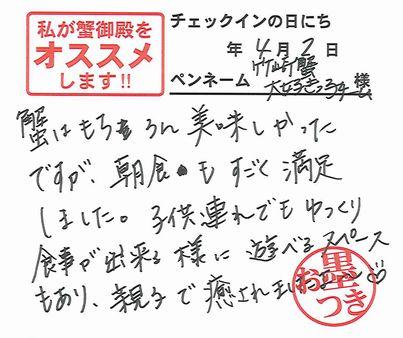 私が蟹御殿を
オススメ
します!!
チェックインの日にち
年4月2日
ペンネーム 竹崎蟹
大好きっ子 様
蟹はもちろん美味しかった
ですが、朝食もすごく満足
しました。子供連れでもゆっくり
食事が出来る様に遊べるスペース
もあり、親子で癒されました〜
お墨つき